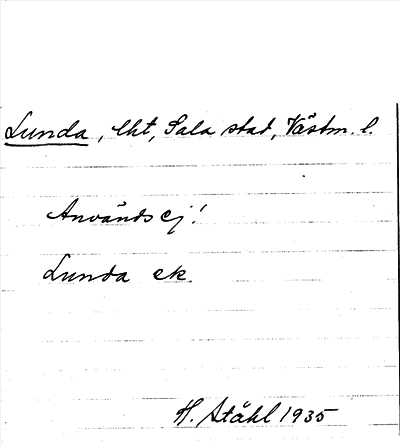 Lunda, lht, Sala stad, Västm. l.
Används ej!
Lunda ek.
H. Ståhl 1935